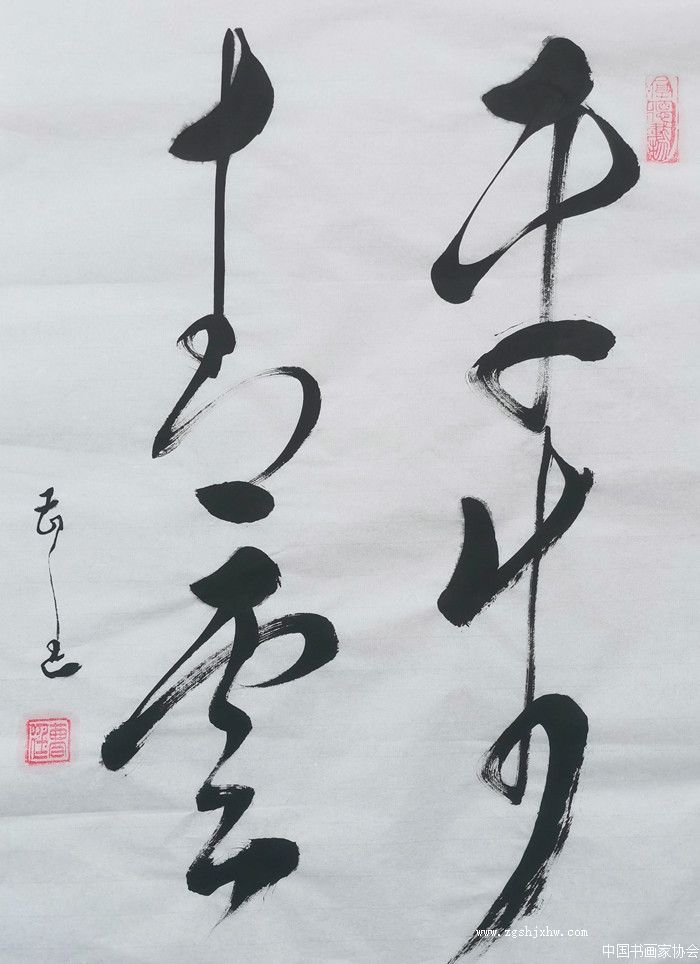 平步
青雲
www.zgshjxhw.com
中国书画家协会